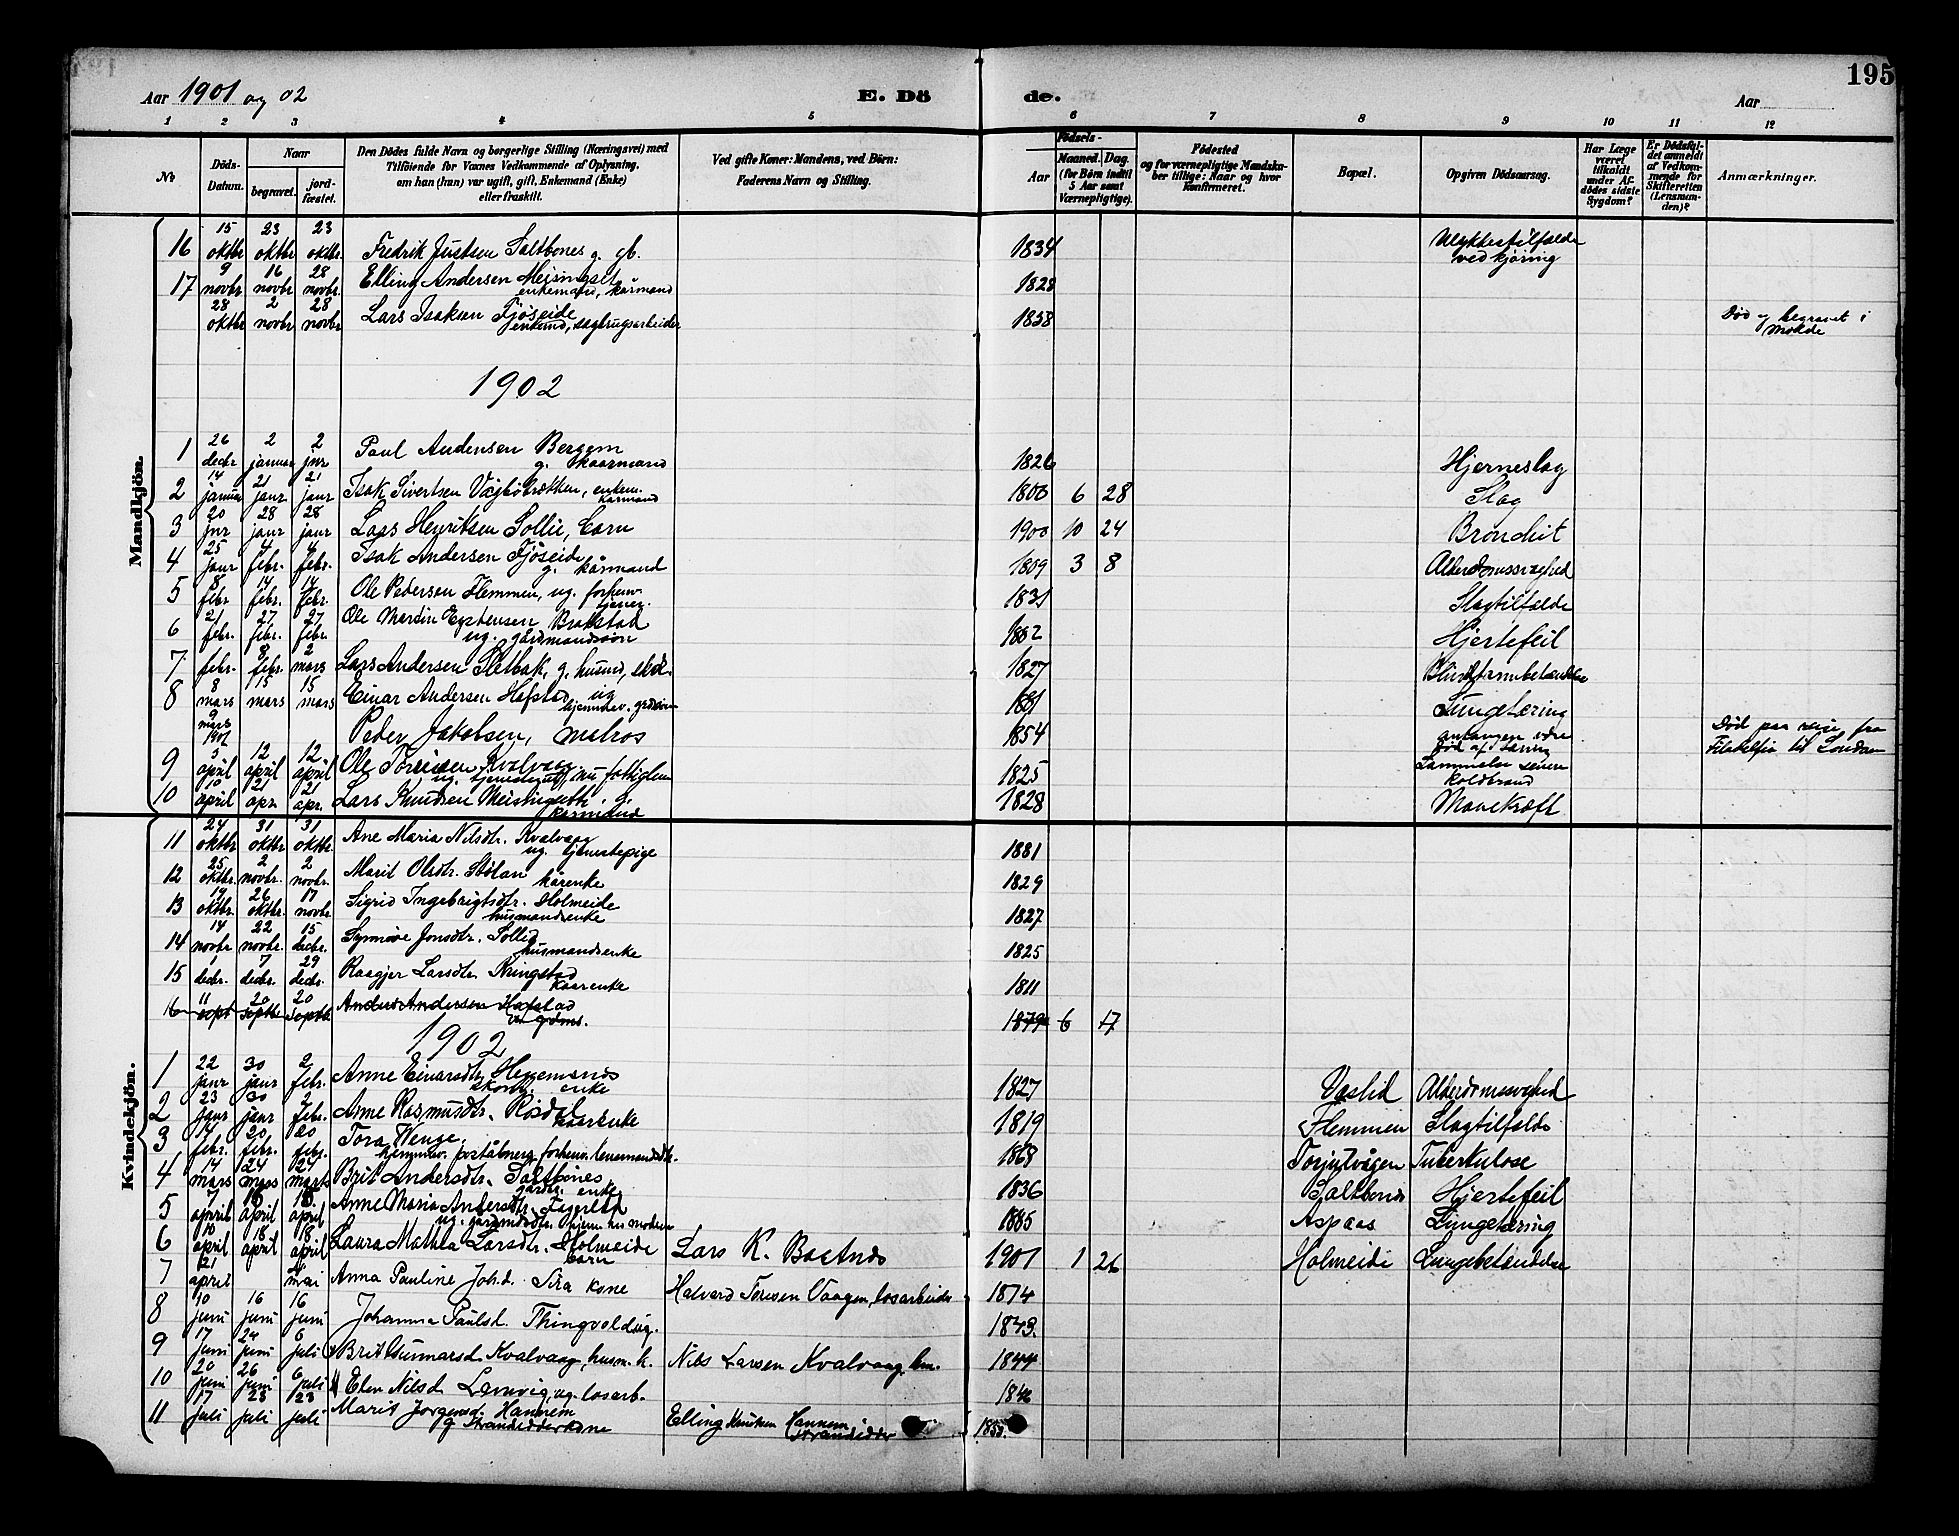 195
Aar 1901 og 02 E. Dö de. Aar
1 2 3 4 5 6 7 8 9 10 11 12
No. Döds-Datum. Naar begravet. jordfæstet. Den Dödes fulde Navn og borgerlige Stilling (Næringsvei) med Tilföiende for Voxnes Vedkommende af Oplysning, om han (hun) var ugift, gift, Enkemand (Enke) eller fraskilt. Ved gifte Koner: Mandens, ved Börn: Faderens Navn og Stilling. Födsels- Aar Maaned. Dag. (for Börn indtil 5 Aar samt Værnepligtige). Födested og for værnepligtige Mandskaber tillige: Naar og hvor Konfirmeret. Bopæl. Opgiven Dödsaarsag. Har Læge været tilkaldt under Afdödes sidste Sygdom? Er Dödsfaldet anmeldt af Vedkommende for Skifteretten (Lensmanden)? Anmærkninger.
Mandkjön.
16 15 oktbr 23 oktbr 23 oktbr. Fredrik Justsen Saltbones g. gb. 1834 Ulykkestilfælde ved kjøring
17 9 novbr 16 novbr 28 novbr. Elling Andersen Meisingset enkemand, kårmand 1828
28 oktbr 2 novbr 28 novbr Lars Isaksen Fjøseide enkemd, sagbrugsarbeider 1858 Død og begravet i Molde
1902
1 26 decbr 2 januar 2 jnr Paul Andersen Bergem g. kaarmand 1826 Hjerneslag
2 14 januar 21 januar 21 januar Isak Sivertsen Vågbøbrækken, enkem. kårmand 1800 6 28 Slag
3 20 jnr 28 januar 28 januar Lars Henriksen Sollie, barn 1900 10 24 Bronchit
4 25 januar 4 febr. 4 febr. Isak Andersen Fjøseide g. kårmand 1809 3 8 Alderdomssvaghed
5 8 febr 14 febr. 14 febr. Ole Pedersen Flemmen, ug. forhenv. tjener. 1831 Slagtilfælde
6 21 febr. 27 febr. 27 febr. Ole Martin Eystensen Brakstad ug. gårdmandssøn 1882 Hjertefeil
7 febr. 8 febr 2 mars Lars Andersen Sletbak, g. husmd, 1827 Blindtarmbetændelse
8 8 mars 15 mars 15 mars Einar Andersen Hafstad ug hjemmev. grdssøn 1881 Lungetæring
9 mars 1901 Peder Jakobsen, matros 1854 antagen være død af tæring Død paa reise fra Filadelfia til London
9 5 april 12 april 12 april Ole Toresen Kvalvaag ug. tjenestegut, nu fattiglem 1825 koldbrand
10 10 april 21 apr. 21 apr. Lars Knudsen Meisingseth. g. kårmand 1828 Mavekræft
Kvindekjön.
11 24 oktbr 31 oktbr 31 oktbr. Ane Maria Nilsdtr. Kvalvaag ug. tjenestepige 1881
12 25 oktbr. 2 novbr. 2 novbr. Marit Olsdtr. Stølan kårenke 1829
13 19 oktbr. 26 oktbr. 17 novbr Sigrid Ingebrigtsdtr. Holmeide husmandsenke 1827
14 14 novbr 22 novbr. 15 decbr. Synnøve Jonsdtr. Sollid husmandsenke 1825
15 1 decbr. 7 decbr. 29 decbr. Raagjer Larsdtr. Kringstad kaarenke 1811
16 11 sept 20 septbr 20 septbr Anders Andersen Hafstad ug grdms. 1879 6 17
1902
1 22 januar 30 januar 2 febr. Anne Einarsdtr. Heggemsnes enke 1827 Vaslid Alderdomssvaghed
2 23 januar 30 januar 2 febr. Anne Rasmusdtr. Røsdal kaarenke 1819 Flemmen Slagtilfælde
3 14 febr. 20 febr. 20 febr. Tora Wenge, hjemmev. poståbnerg forhenv. lensmandsdtr. 1868 Torjulvågen Tuberkulose
4 14 mars 24 mars 24 marts Brit Andersdtr. Saltbones gårdbr. enke 1836 Saltbones Hjertefeil
5 7 april 15 april 15 april Anne Maria Andersdtr. Fagerli ug. gårdmdsdtr. hjem. hos moderen 1885 Aspaas Lungetæring
6 10 april 18 april 18 april Laura Mathea Larsdtr. Holmeide barn Lars K. Baatnes 1901 1 26 Holmeide Lungebetændelse
7 21 april 4 mai Anna Pauline Joh.d. Sira kone Halvard Toresen Vaagen, losarbeider 1874
8 10 juni 16 juni 16 juni Johanna Paulsd. Thingvold ug. 1843.
9 17 juni 24 juni 6 juli Brit Gunnarsd. Kvalvaag, husm. k. Nils Larsen Kvalvaag hm. 1844
10 20 juni 26 juni 6 juli Elen Nilsd Lervig, ug. losarb. 1846
11 17 juli 23 juli 23 juli Marit Jørgensd. Hannem g. Strandsidderkone Elling Knutsen Hannem Strandsidder 1855.